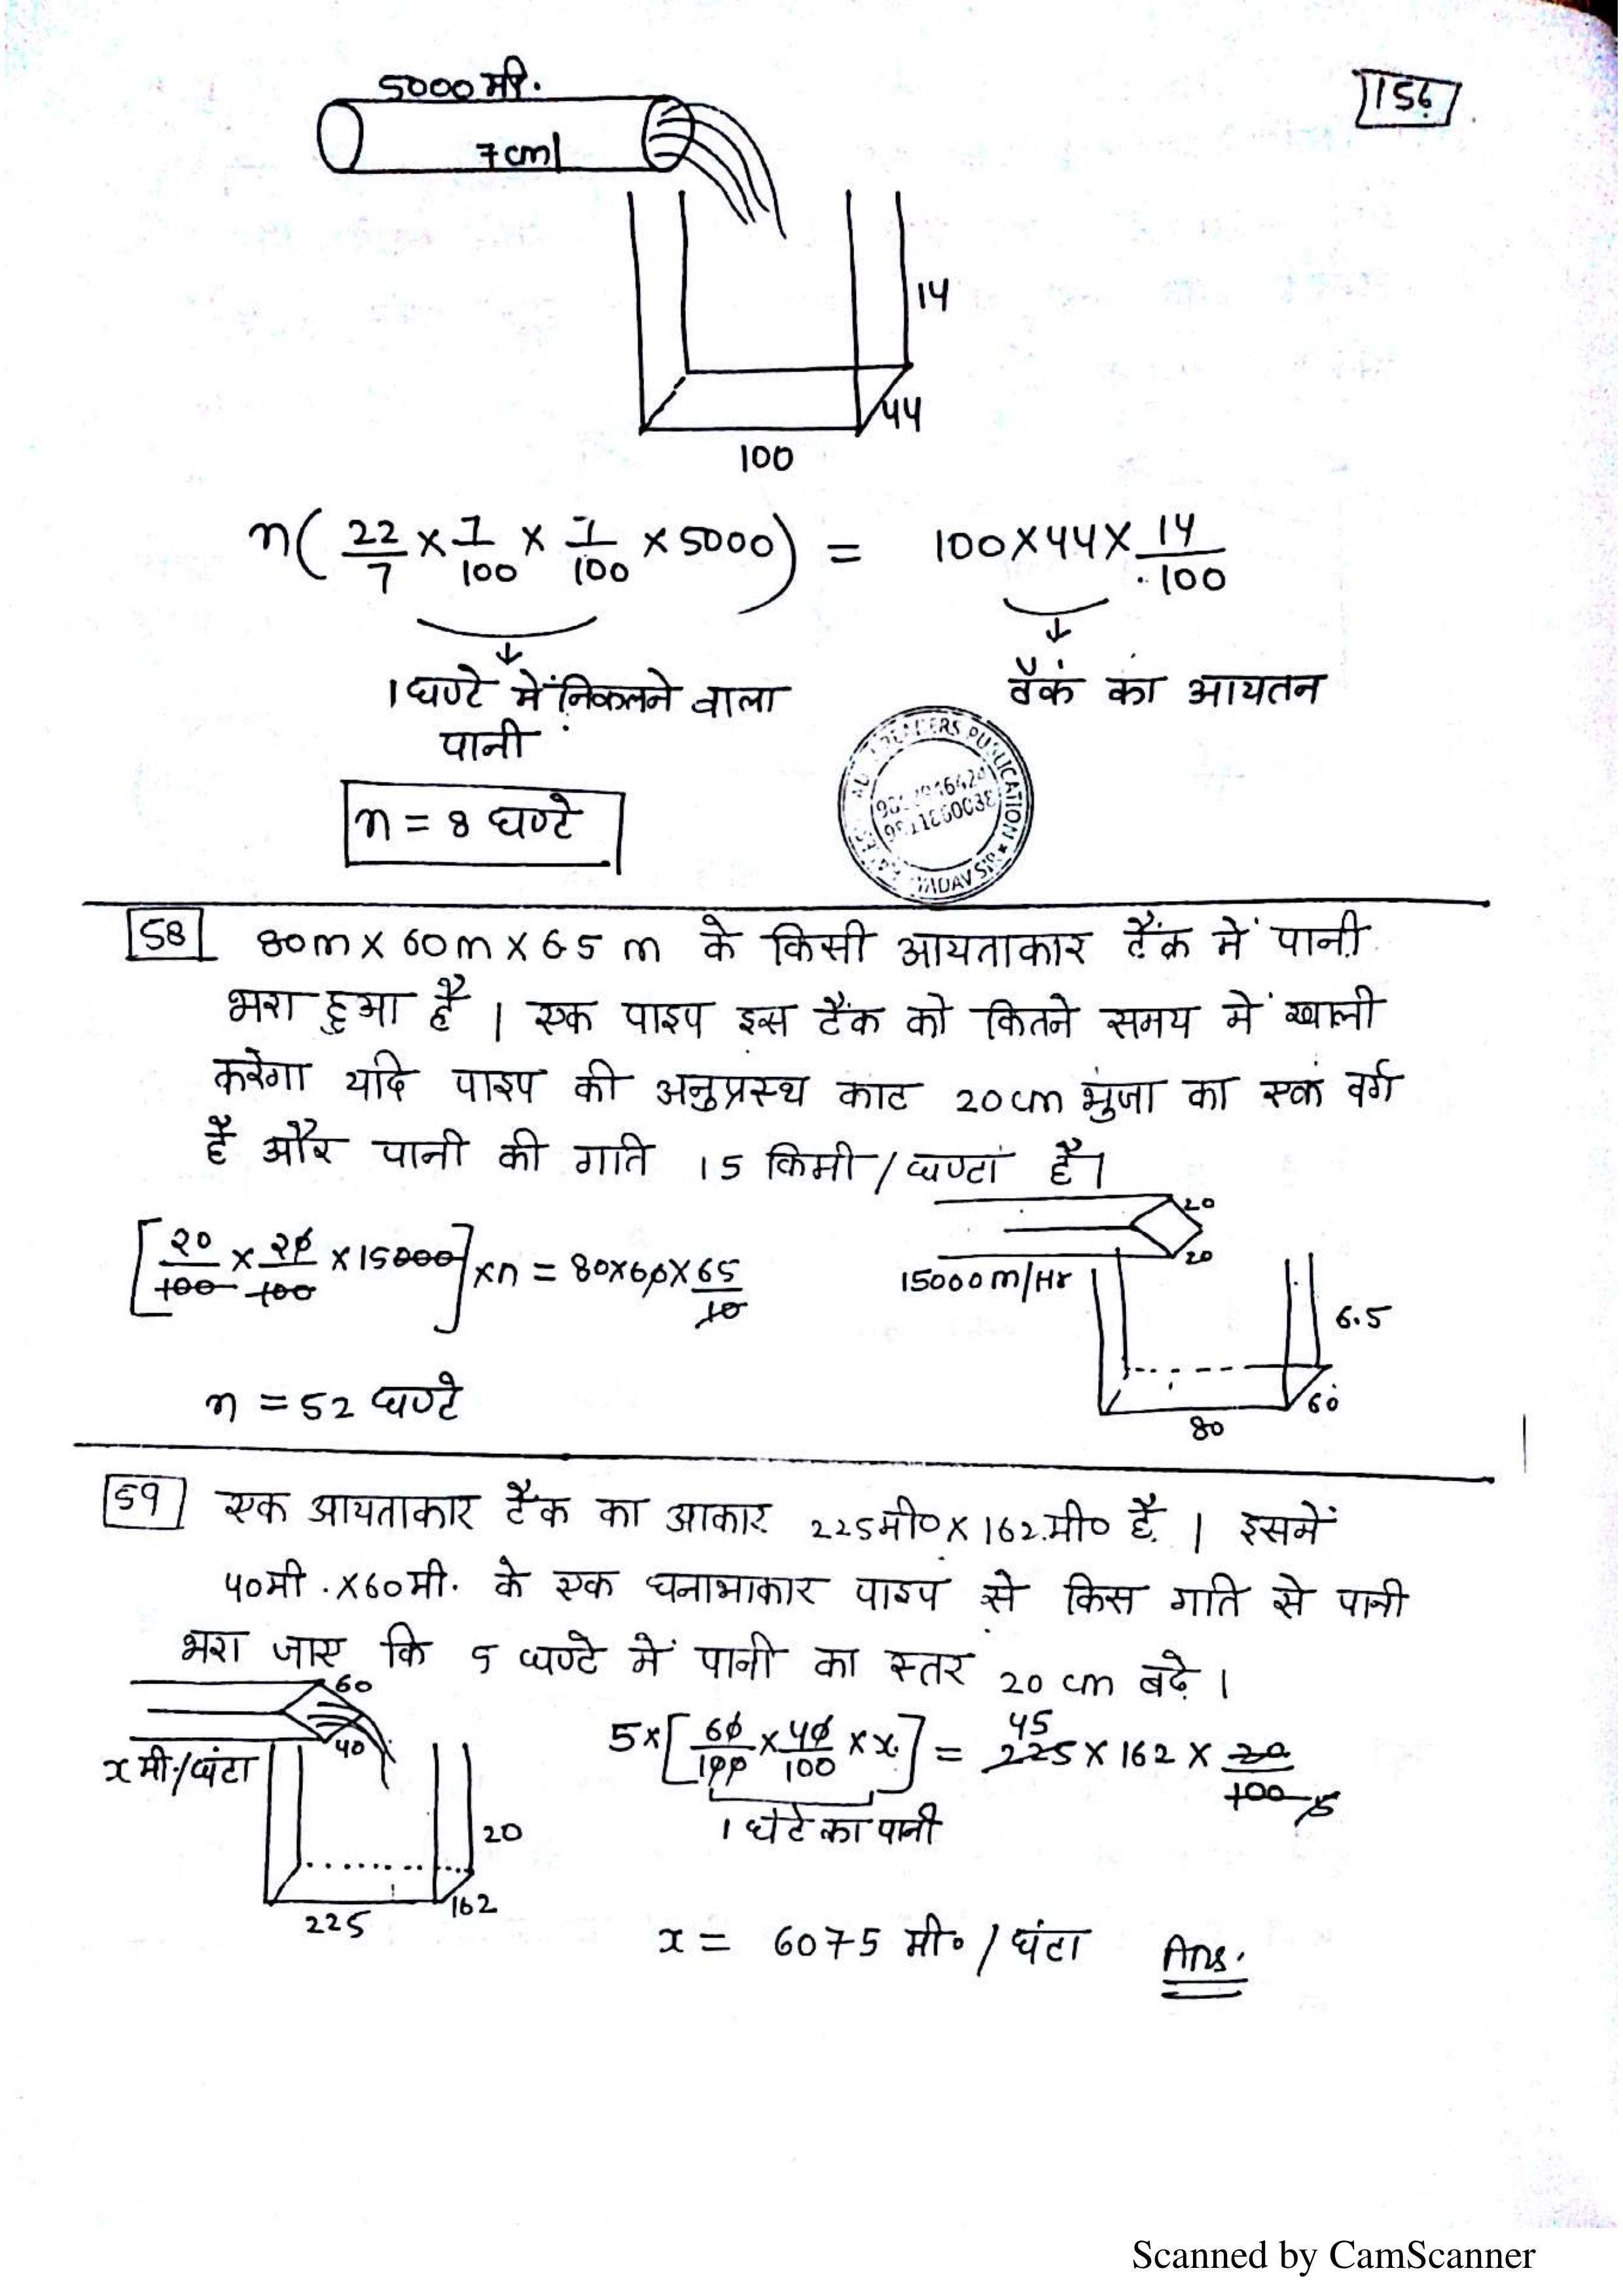 5000 मी.
156
7cm
14
44
100
n( 22/7 × 7/100 × 7/100 × 5000 ) = 100×44× 14/100
↓ ↓
1 घण्टे में निकलने वाला टैंक का आयतन
पानी
n = 8 घण्टे
58 80m × 60m × 6.5 m के किसी आयताकार टैंक में पानी
भरा हुआ है । एक पाइप इस टैंक को कितने समय में खाली
करेगा यदि पाइप की अनुप्रस्थ काट 20cm भुजा का एक वर्ग
है और पानी की गति 15 किमी / घण्टा है।
20
20
[ 20/100 × 20/100 × 15000 ] × n = 80×60× 65/10
15000m/Hr
6.5
60
80
n = 52 घण्टे
59 एक आयताकार टैंक का आकार 225मी० × 162.मी० है । इसमें
40मी . ×60मी. के एक घनाभाकार पाइप से किस गति से पानी
भरा जाए कि 5 घण्टे में पानी का स्तर 20 cm बढ़े ।
60
40
x मी./घंटा
20
162
225
45
5× [ 60/100 × 40/100 × x ] = 225 × 162 × 20/100 5
1 घंटे का पानी
x = 6075 मी० / घंटा Ans.
PUBLICATION
YADAV SIR
Scanned by CamScanner